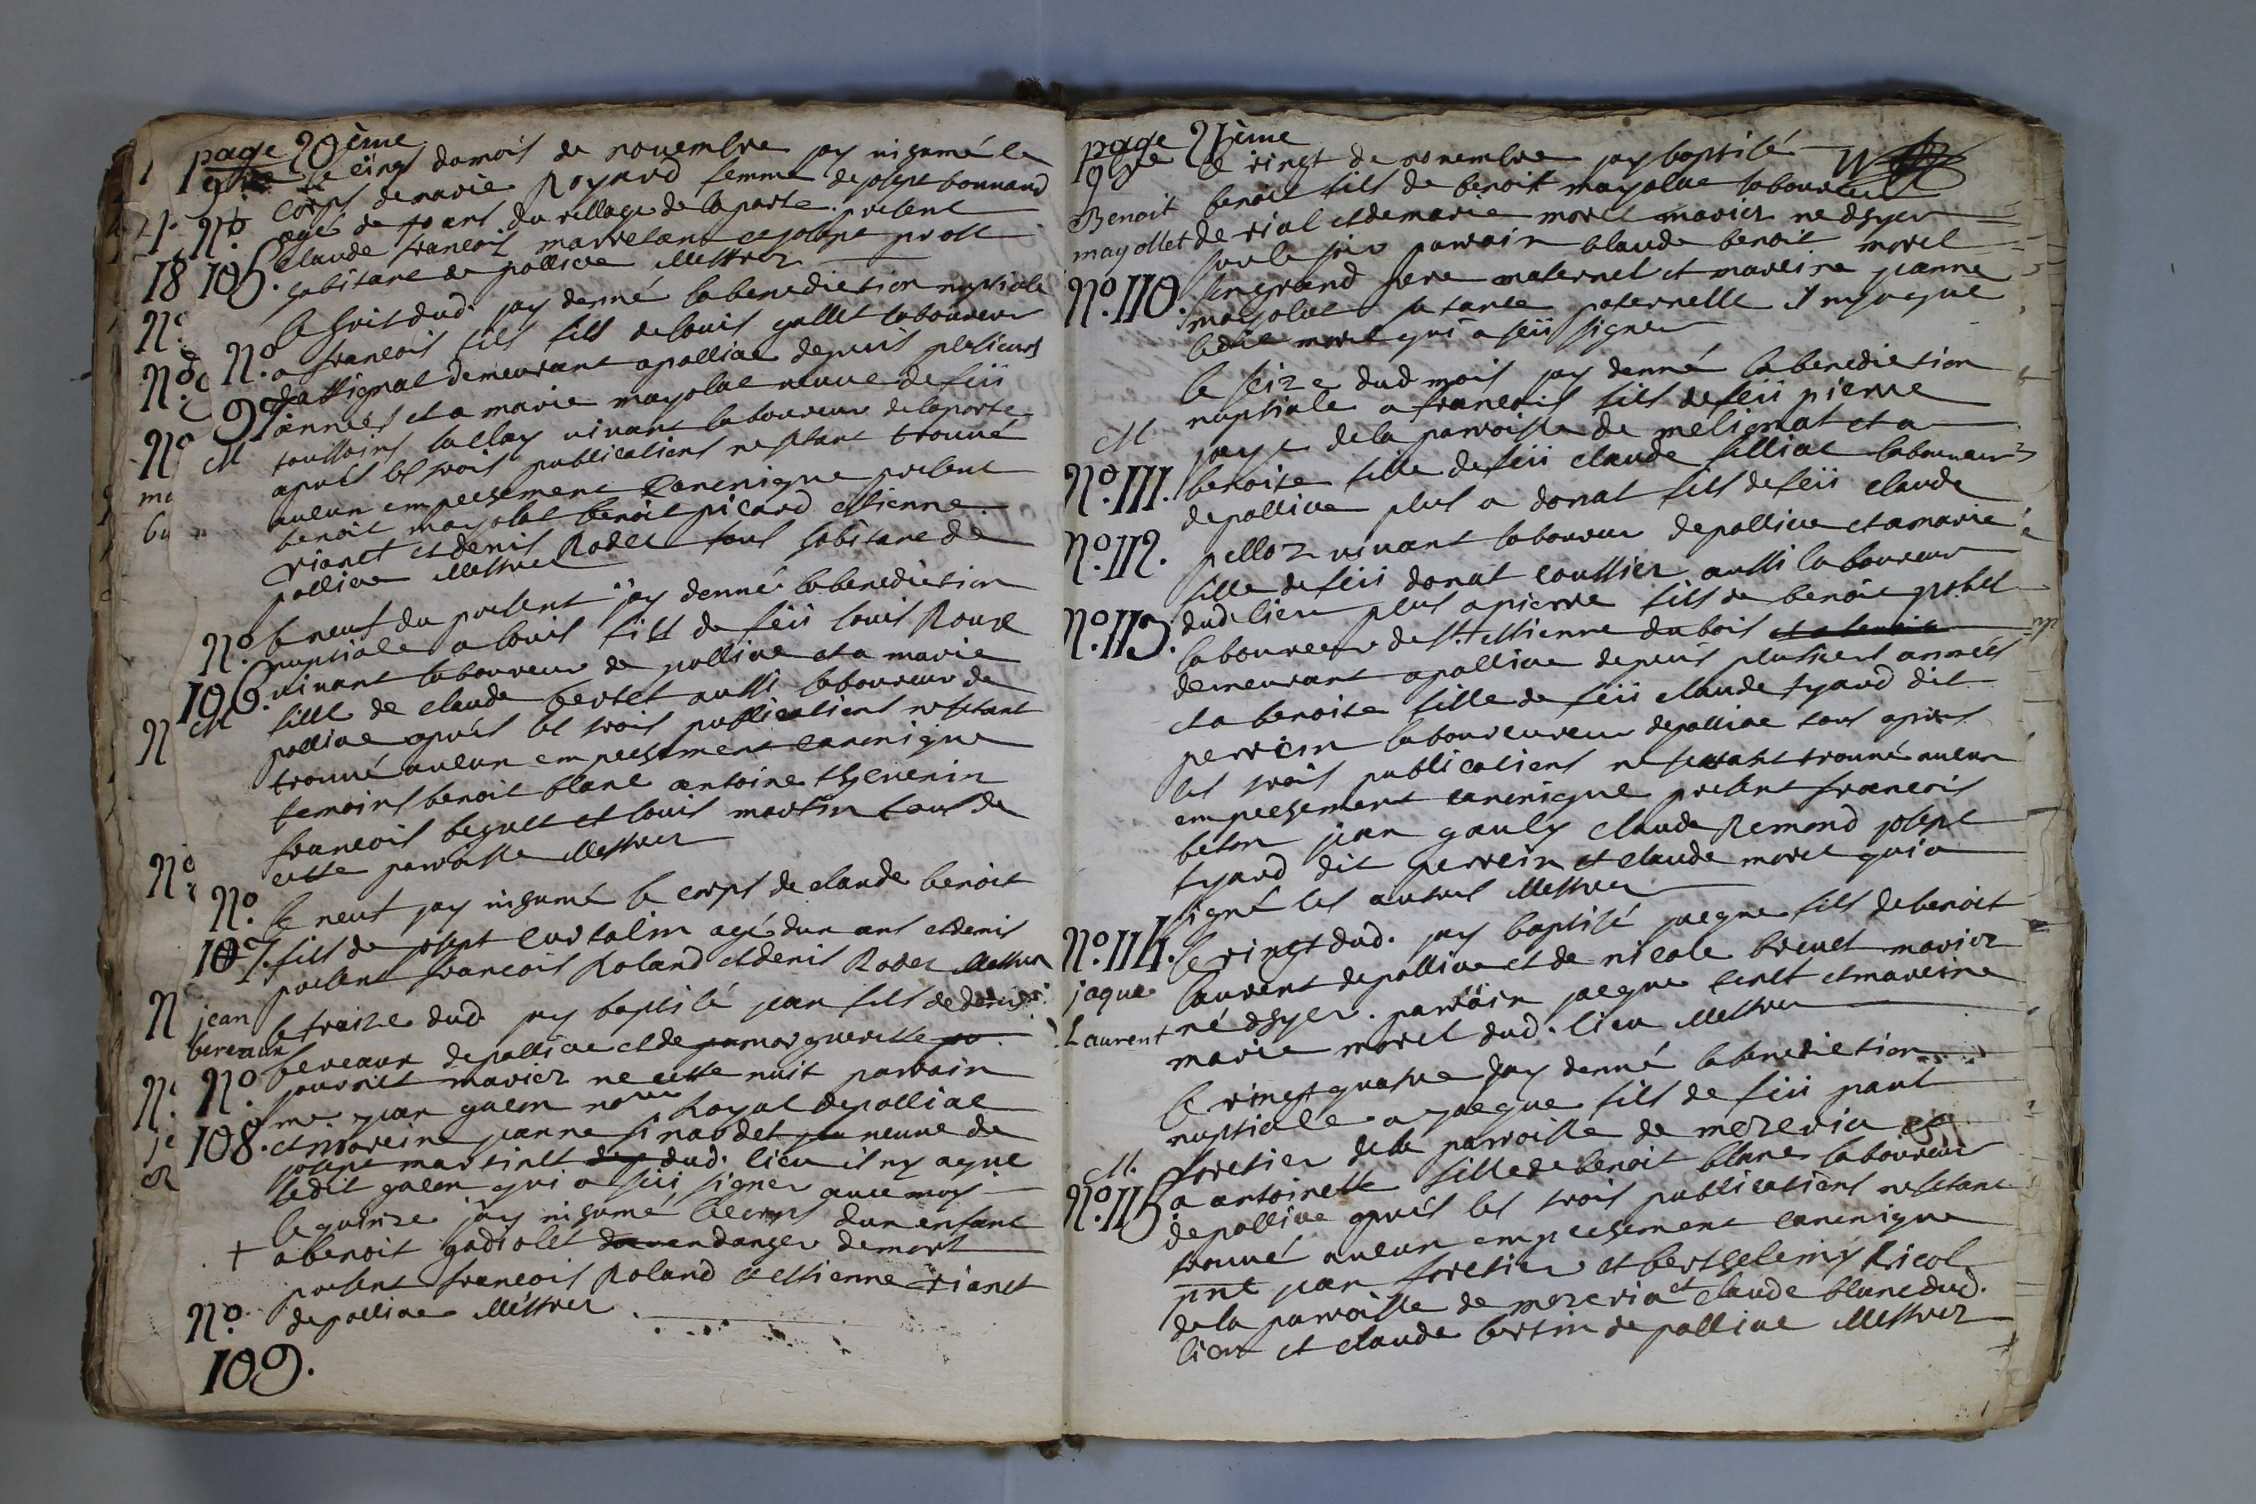 page 20ème
9bre le cinq du mois de novembre jay inhumé le
corps de marie Royard femme de joseph bonnand
agé de 40 ans du village de la porte. present
No. 105. claude francois marvelant et joseph prost
habitant de polliac Mestrer
le huit dud. jay donné la benediction nuptiale
No. 9 a francois fils fils de louis gallet laboureur
dattignat demeurant a polliac depuis plusieurs
années et a marie mayolat veuve de feü
M toussains lallay vivant laboureur de laporte
aprés les trois publications nestant trouvé
aucun empechement canonique present
benoit mayolat benoit picard estienne
vianet et denis Rodet tous habitant de
polliac Mestrer
No. le neuf du present jay donné la benediction
nuptiale a louis fils de feü louis Roux
106. vivant laboureur de polliac et a marie
M fille de claude bertet aussi laboureur de
polliac aprés les trois publications nestant
trouvé aucun empechement canonique
temoins benoit blanc antoine thevenin
francois beguet et louis martin tous de
cette parroisse Mestrer
No. le neuf jay inhumé le corps de claude benoit
107. fils de joseph curtalin agé dun ans et demis
present francois Roland et denis Rodet Mestrer
jean le traize dud. jay baptisé jean fils de denis
bereaux bereaux de polliac et de marguerite
No. pauvret mariez né cette nuit parrain
me jean guion nore Royal de polliac
108. et mareine janne sinardet veuve de
joseph martinet dud. lieu il ny aque
ledit guion qui a seü signer avec moy
le quinze jay inhumé le corps dun enfant
+ a benoit gadiolet en danger de mort
present francois Roland et estienne vianet
No. de polliac Mestrer
109.
page 21ème
9bre le vingt de novembre jay baptisé
Benoit benoit fils de benoit mayolat laboureur
mayollet de vial et de marie morel mariez né dhyer
sur le soir parrain claude benoit morel
No. 110. son grand pere maternel et mareine janne
mayolat sa tante paternelle il ny a que
ledit morel qui a seü signer
le seize dud mois jay donné la benediction
nuptiale a francois fils de feü pierre
M joly de la parroisse de melionat et a
No. 111. benoite fille de feü claude filliat laboureur
de polliac plus a donat fils de feü claude
No. 112. pelloz vivant laboureur de polliac et a marie
fille de feü donat coussier aussi laboureur
dud. lieu plus a pierre fils de benoit probel
No. 113. laboureur de st. estienne du bois
demeurant a polliac depuis plusieurs années
et a benoite fille de feü claude tyard dit
perrein laboureur de polliac tous aprés
les trois publications nestant trouvé aucun
empechement canonique present francois
beton jean gauly claude Remond joseph
tyard dit perrein et claude morel qui a
signé les autres Mestrer
No. 114. le vingt dud. jay baptisé jacque fils de benoit
jaque laurent de polliac et de nicole brevet mariez
né dhyer. parrain jacque benet et mareine
Laurent marie morel dud. lieu Mestrer
le vingt quatre jay donné la benediction
nuptiale a jacque fils de feü paul
M. foretier de la parroisse de mezeria et
No. 115 a antoinette fille de benoit blanc laboureur
de polliac aprés les trois publications nestant
trouvé aucun empechement canonique
pnt jean foretier et berthelemy Ricol
de la parroisse de mezeria et claude blanc dud.
lieu et claude bertin de polliac Mestrer